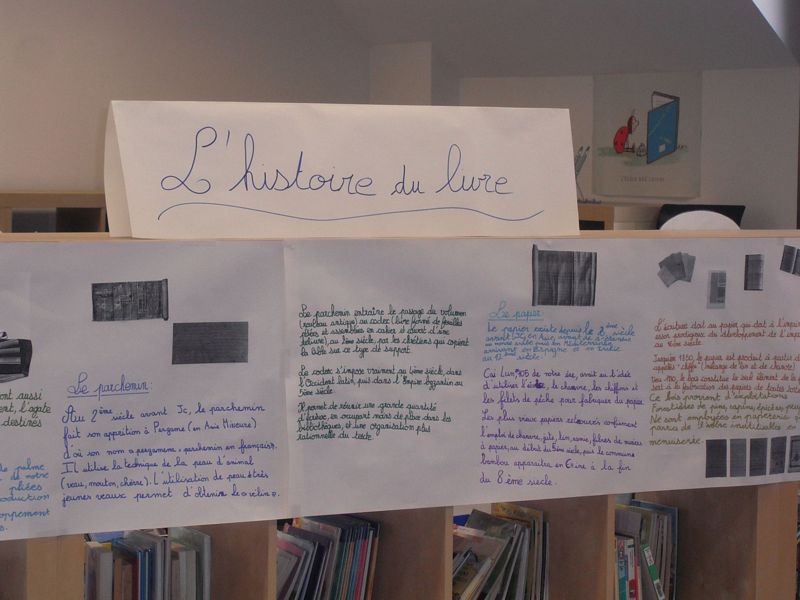 L'histoire du livre
ont aussi
l'agate
destinés
palme
de notre
pliées
oduction
oppement
s.
Le parchemin
Au 2ème siècle avant Jc, le parchemin
fait son apparition à Pergame (en Asie Mineure)
d'où son nom pergamena, parchemin en français.
Il utilise la technique de la peau d'animal
(veau, mouton, chèvre). L'utilisation de peau de très
jeunes veaux permet d'obtenir le vélin.
Le parchemin entraîne le passage du volumen
(rouleau antique) au codex (livre formé de feuilles
pliées et assemblées en cahier et couvert d'une
reliure), au 1ème siècle, par les chrétiens qui copient
la bible sur ce type de support.
Le codex s'impose vraiment au 4ème siècle, dans
l'Occident latin, puis dans l'Empire byzantin au
5ème siècle.
Il permet de réunir une grande quantité
d'écrits, en occupant moins de place dans les
bibliothèques, et une organisation plus
rationnelle du texte.
Le papier
Le papier existe depuis le 2ème siècle
avant
en Espagne et en
au 12ème siècle.
Cai Lun, 105 de notre ère, avait eu l'idée
d'utiliser le chanvre, les chiffons et
les filets de pêche pour fabriquer du papier.
Les plus vieux papiers retrouvés confirment
l'emploi de chanvre, jute, lin, ramie, fibres de mûriers
à papier, au début du 5ème siècle, puis le
bambou apparaîtra en Chine à la fin
du 8ème siècle.
L'écriture doit au papier qui doit à l'impri
essor prodigieux du développement de l'impri
au siècle
Jusqu'en 1850, le papier est produit à partir de
appelés "chiffe" (mélange de lin et de chanvre)
le bois constitue le seul élément de la
sert à la fabrication des papiers de toutes sortes
Ce bois provient d'exploitations
forestières de pins, sapins, épicéas,
Ne sont employées en papeterie
parties de l'arbre inutilisables en
menuiserie.